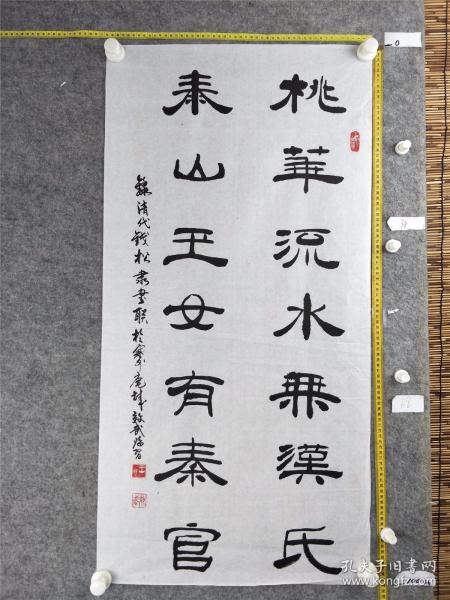 桃華流水無漢氏
泰山王女有秦官
錄清代錢松隸書聯於
孔夫子旧书网
www.kongfz.com